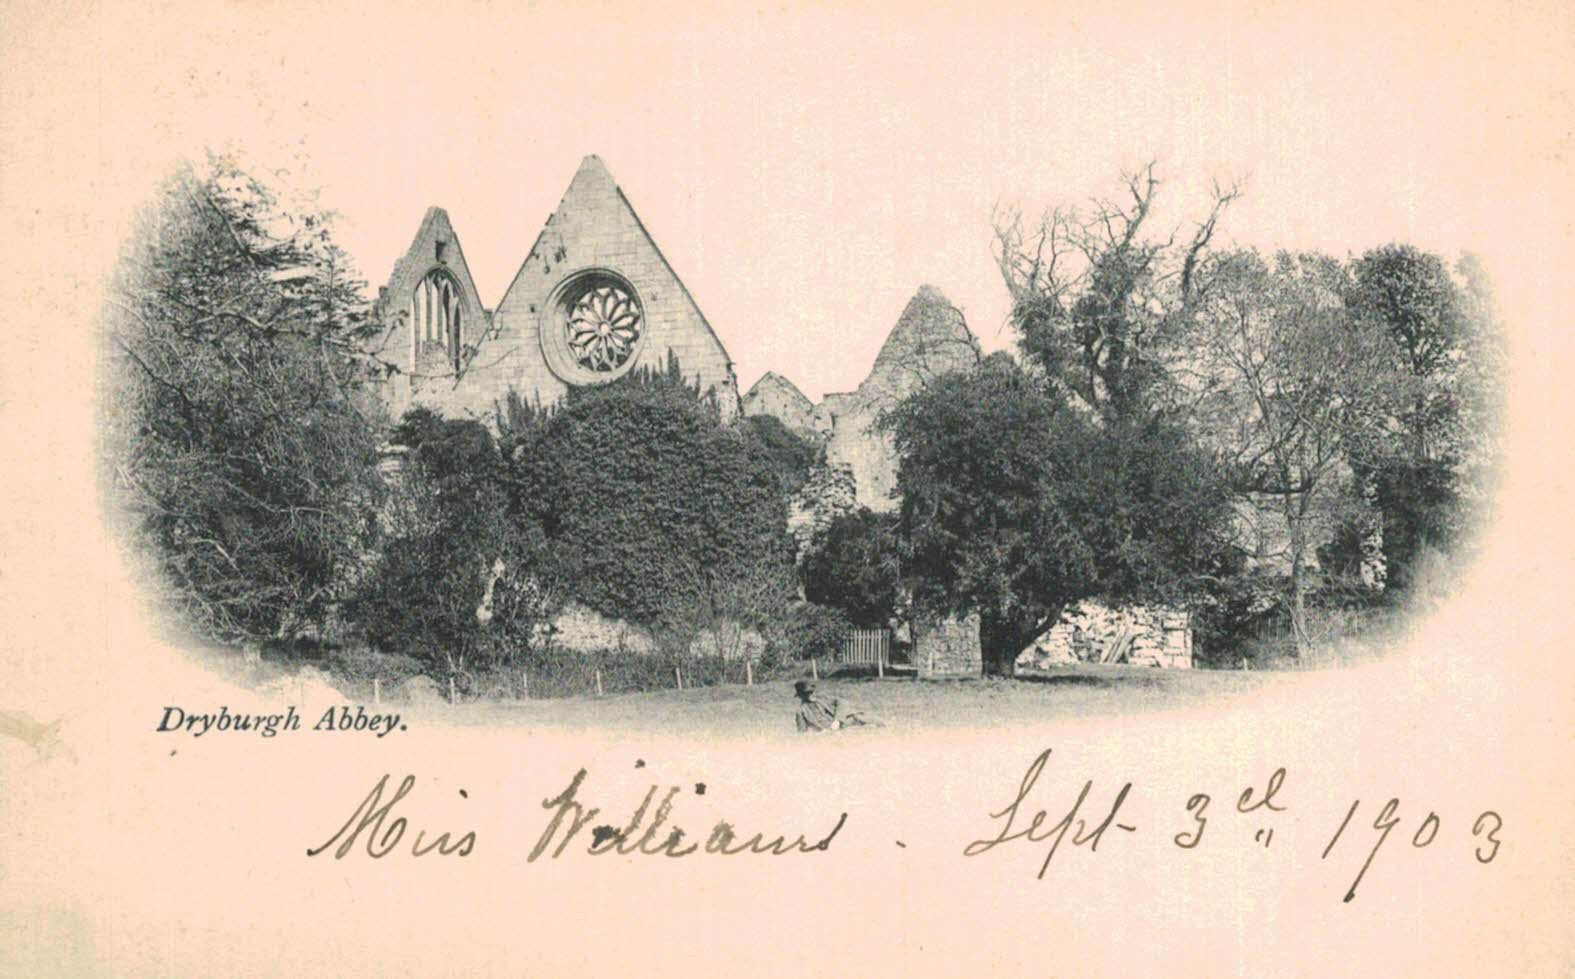 Dryburgh Abbey.
Miss Williams. Sept 3rd 1903